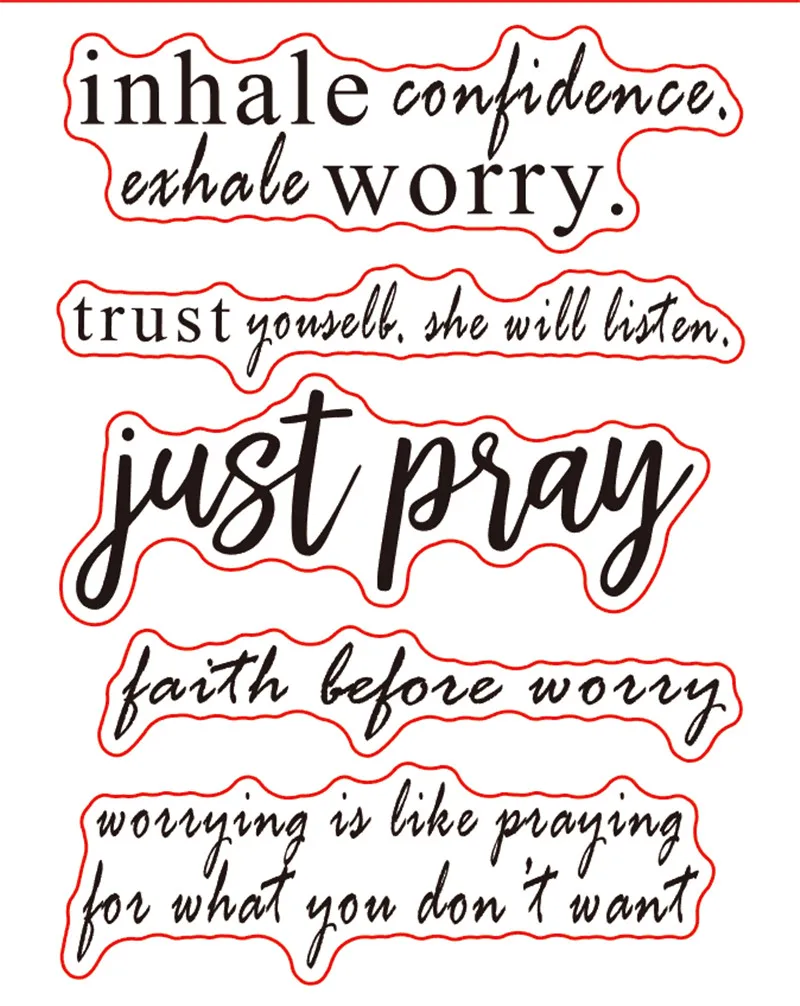 inhale confidence.
exhale worry.
trust youselb. she will listen.
just pray
faith before worry
worrying is like praying
for what you don't want